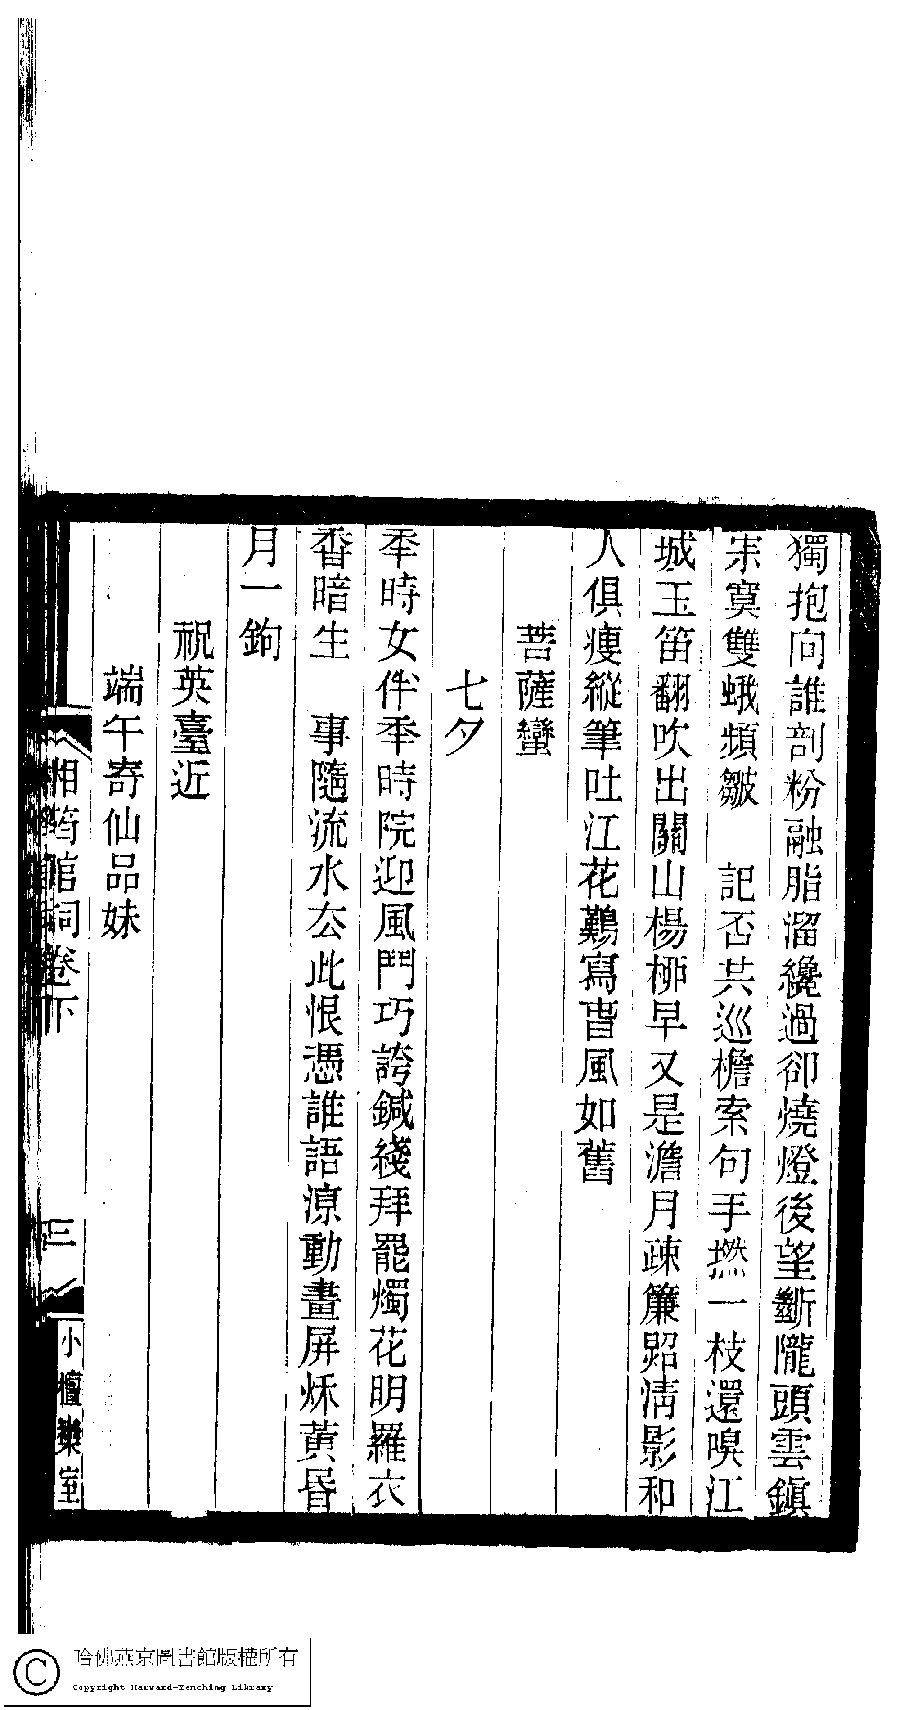 獨抱向誰剖粉融脂溜纔過卻燒燈後望斷隴頭雲鎮
宋寞雙蛾頻皺　記否共巡檐索句手撚一枝還嗅江
城玉笛翻吹出關山楊栁早又是澹月疎簾照清影和
人俱瘦縱筆吐江花鷬寫皆風如舊
菩薩蠻
七夕
秊時女伴秊時院迎風鬥巧誇鍼綫拜罷燭花明羅衣
香暗生　事隨流水去此恨憑誰語凉動畫屏秌黃昏
月一鉤
祝英臺近
端午寄仙品妹
湘筠館詞卷下
三
小檀欒室
哈佛燕京圖書館版權所有
Copyright Harvard-Yenching Library